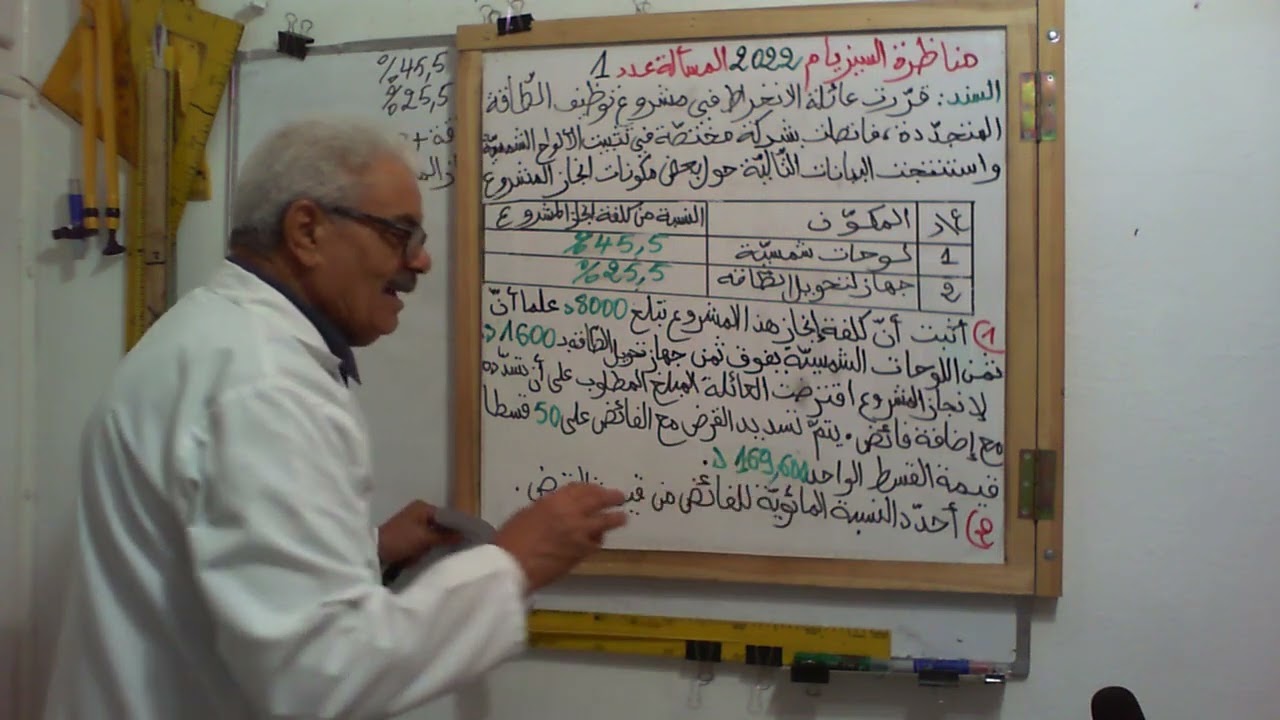 مناظرة السيزيام 2022 المسألة عدد 1
السند: قرّرت عائلة الانخراط في مشروع توظيف الطّاقة
المتجدّدة، فاتصلت بشركة مختصّة في تثبيت الألواح الشمسيّة
واستنتجت البيانات التّاليّة حول بعض مكونات انجاز المشروع
ع/د المكوّن النسبة من كلفة انجاز المشروع
1 لوحات شمسيّة 45,5%
2 جهاز لتحويل الطّاقة 25,5%
1) أثبت أنّ كلفة إنجاز هذا المشروع تبلغ 8000د علما أنّ
ثمن اللوحات الشمسيّة يفوق ثمن جهاز تحويل الطّاقة بـ 1600د
لإنجاز المشروع اقترضت العائلة المبلغ المطلوب على أن تسدّده
مع إضافة فائض. يتمّ تسديد القرض مع الفائض على 50 قسطا
قيمة القسط الواحد 169,600د.
2) أحدّد النسبة المائويّة للفائض من
%45,5
%25,5